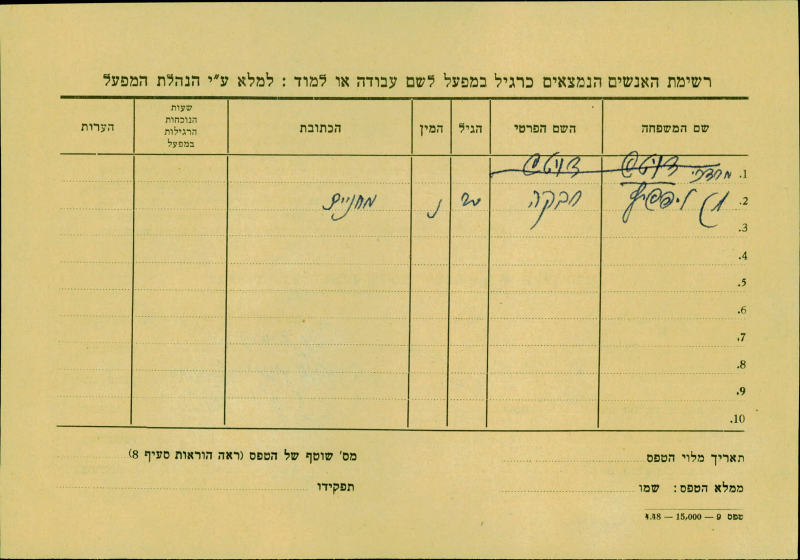 רשימת האנשים הנמצאים כרגיל במפעל לשם עבודה או למוד : למלא ע״י הנהלת המפעל
שם המשפחה השם הפרטי הגיל המין הכתובת שעות הנוכחות הרגילות במפעל הערות
.1
.2 רבקה נ מחניים
.3
.4
.5
.6
.7
.8
.9
.10
תאריך מלוי הטפס מס׳ שוטף של הטפס (ראה הוראות סעיף 8)
ממלא הטפס : שמו תפקידו
טפס 9 — 15,000 — 4.48